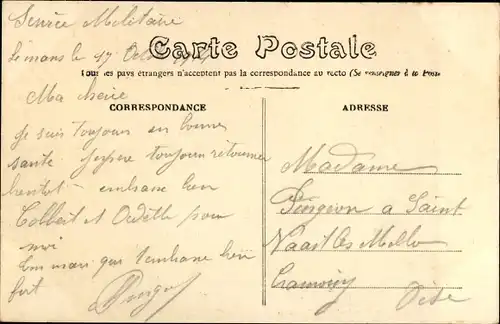 Service Militaire
Lemans le 17 Oct
Carte Postale
Tous les pays étrangers n'acceptent pas la correspondance au recto (Se renseigner à la Poste
Ma cherie
CORRESPONDANCE
je suis toujour en bonne
santé jespere toujour retourner
bientot embrase bien
Colbert et Odette pour
moi
ton mari qui tembrase bien
fort
ADRESSE
Madame
Pingeon a Saint
Vaast les Mello
Cramoisy
Oise